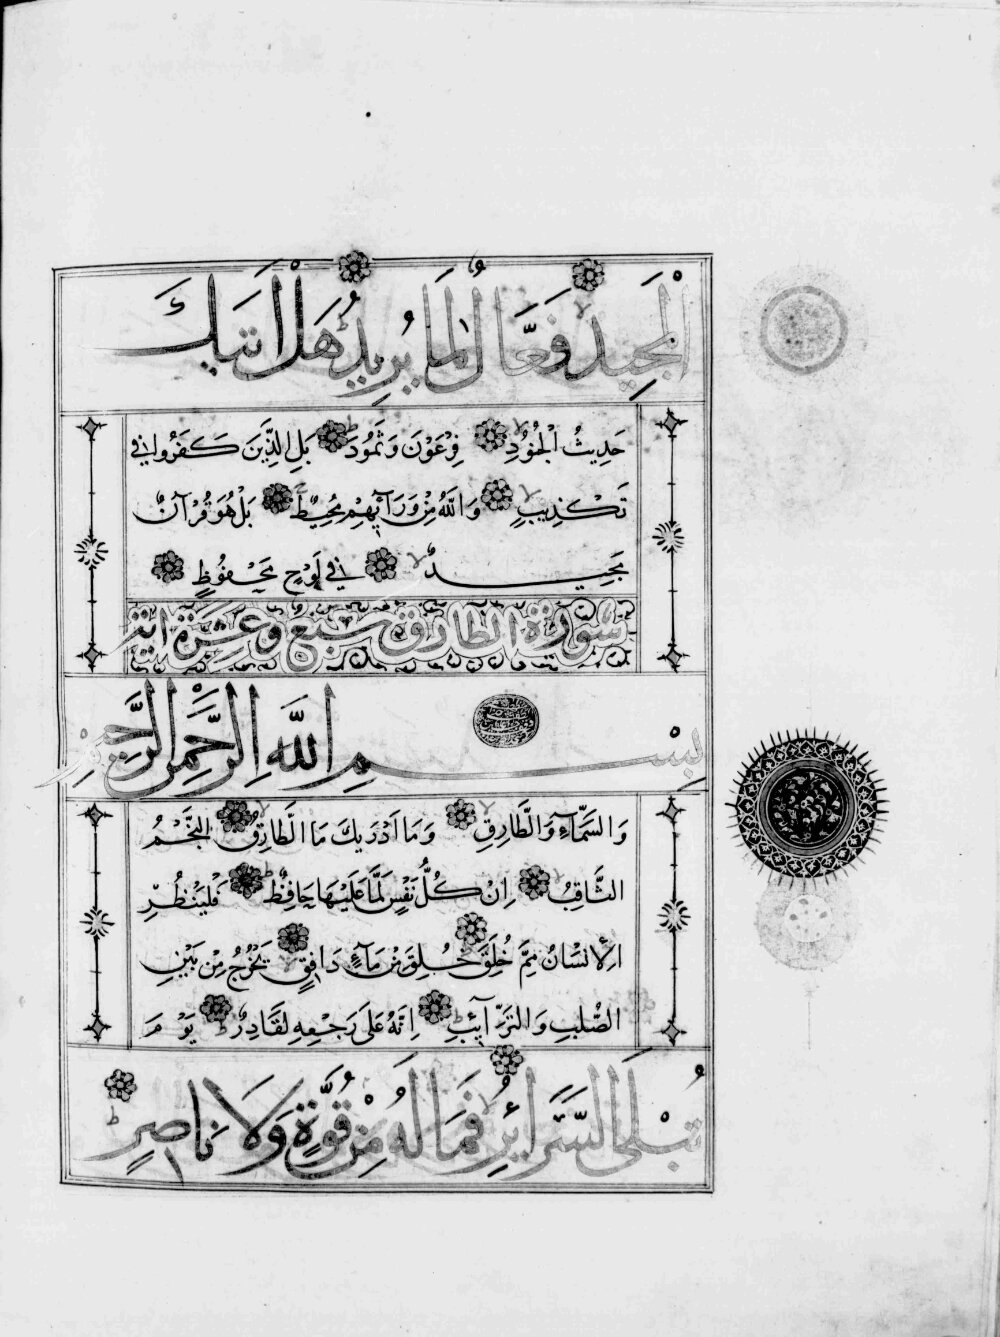 الْمَجِيدُ فَعَّالٌ لِمَا يُرِيدُ هَلْ اَتٰيكَ
حَدِيثُ الْجُنُودِ فِرْعَوْنَ وَثَمُودَ بَلِ الَّذِينَ كَفَرُوا فِي
تَكْذِيبٍ وَاللّٰهُ مِنْ وَرَآئِهِمْ مُحِيطٌ بَلْ هُوَ قُرْآنٌ
مَجِيدٌ فِي لَوْحٍ مَحْفُوظٍ
سورة الطارق سبع وعشرة آية
بِسْمِ اللّٰهِ الرَّحْمٰنِ الرَّحِيمِ
وَالسَّمَآءِ وَالطَّارِقِ وَمَا اَدْرٰيكَ مَا الطَّارِقُ النَّجْمُ
الثَّاقِبُ اِنْ كُلُّ نَفْسٍ لَمَّا عَلَيْهَا حَافِظٌ فَلْيَنْظُرِ
الْاِنْسَانُ مِمَّ خُلِقَ خُلِقَ مِنْ مَآءٍ دَافِقٍ يَخْرُجُ مِنْ بَيْنِ
الصُّلْبِ وَالتَّرَآئِبِ اِنَّهُ عَلٰى رَجْعِهِ لَقَادِرٌ يَوْمَ
تُبْلَى السَّرَآئِرُ فَمَا لَهُ مِنْ قُوَّةٍ وَلَا نَاصِرٍ